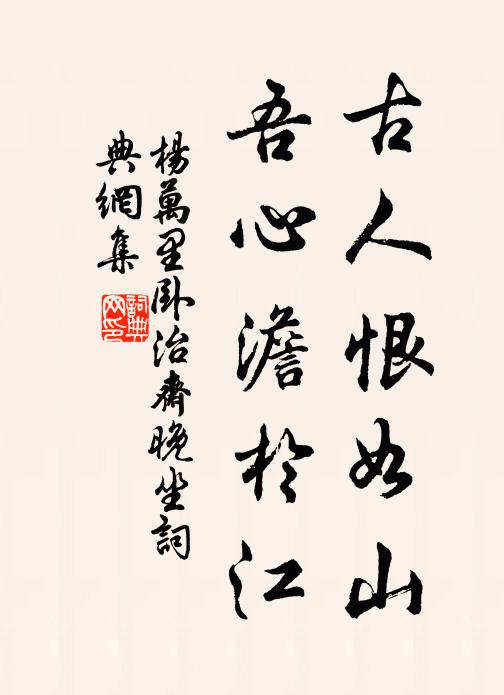 古人恨如山
吾心澹於江
楊萬里卧治齋晚坐詞
典網集
詞典網印